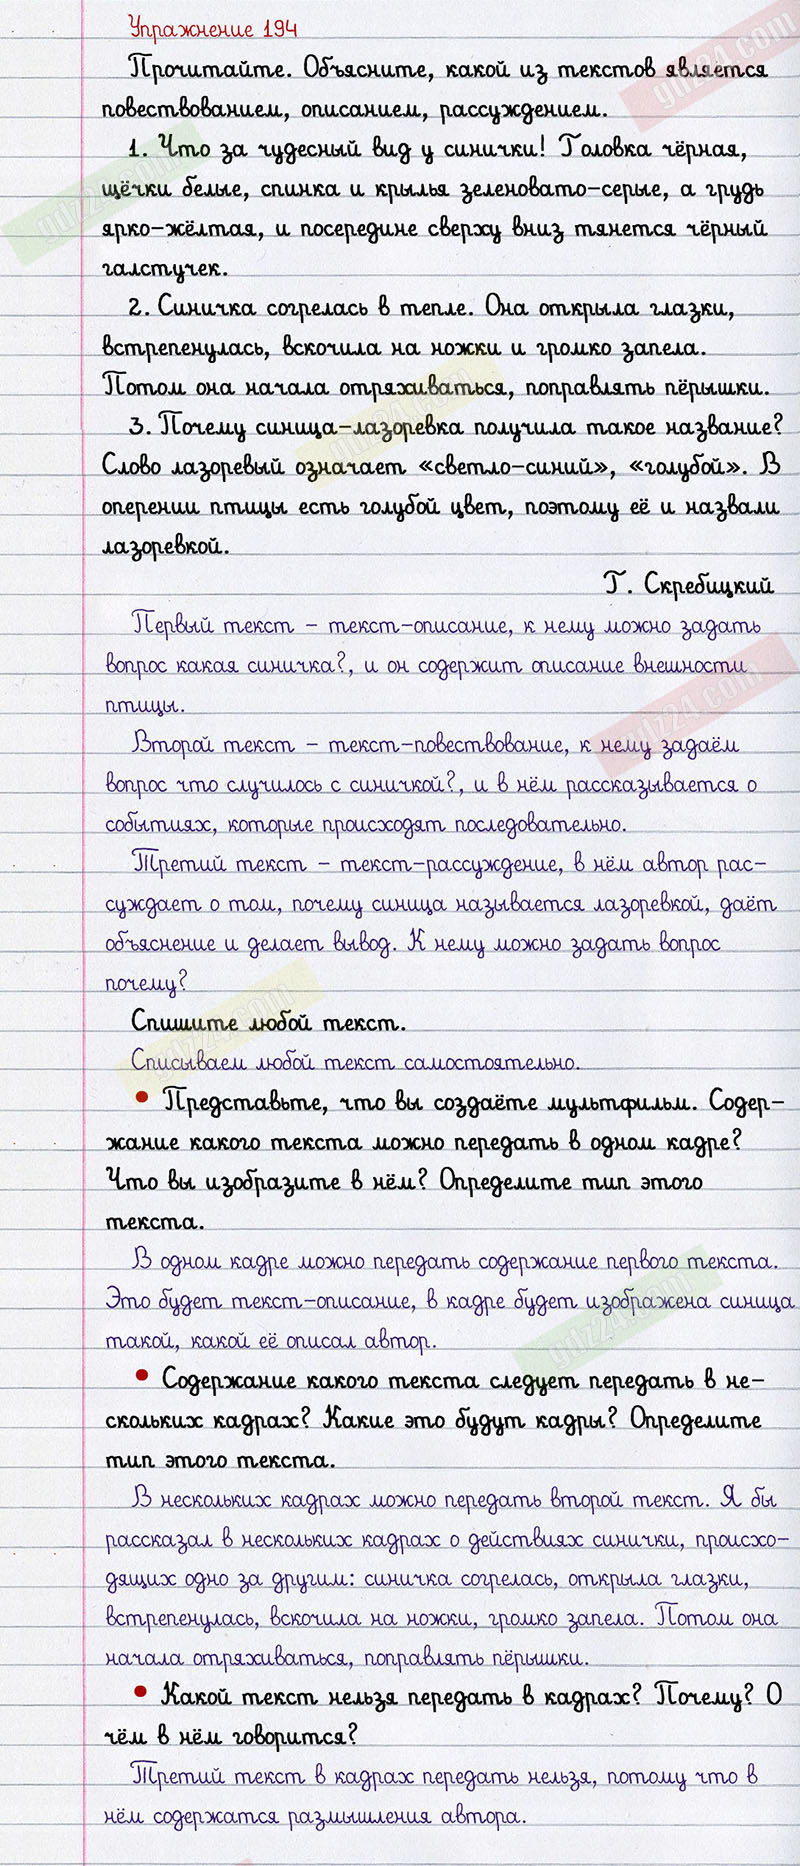 Упражнение 194
Прочитайте. Объясните, какой из текстов является
повествованием, описанием, рассуждением.
1. Что за чудесный вид у синички! Головка чёрная,
щёчки белые, спинка и крылья зеленовато-серые, а грудь
ярко-жёлтая, и посередине сверху вниз тянется чёрный
галстучек.
2. Синичка согрелась в тепле. Она открыла глазки,
встрепенулась, вскочила на ножки и громко запела.
Потом она начала отряхиваться, поправлять пёрышки.
3. Почему синица-лазоревка получила такое название?
Слово лазоревый означает «светло-синий», «голубой». В
оперении птицы есть голубой цвет, поэтому её и назвали
лазоревкой.
Г. Скребицкий
Первый текст – текст-описание, к нему можно задать
вопрос какая синичка?, и он содержит описание внешности
птицы.
Второй текст – текст-повествование, к нему задаём
вопрос что случилось с синичкой?, и в нём рассказывается о
событиях, которые происходят последовательно.
Третий текст – текст-рассуждение, в нём автор рас-
суждает о том, почему синица называется лазоревкой, даёт
объяснение и делает вывод. К нему можно задать вопрос
почему?
Спишите любой текст.
Списываем любой текст самостоятельно.
• Представьте, что вы создаёте мультфильм. Содер-
жание какого текста можно передать в одном кадре?
Что вы изобразите в нём? Определите тип этого
текста.
В одном кадре можно передать содержание первого текста.
Это будет текст-описание, в кадре будет изображена синица
такой, какой её описал автор.
• Содержание какого текста следует передать в не-
скольких кадрах? Какие это будут кадры? Определите
тип этого текста.
В нескольких кадрах можно передать второй текст. Я бы
рассказал в нескольких кадрах о действиях синички, происхо-
дящих одно за другим: синичка согрелась, открыла глазки,
встрепенулась, вскочила на ножки, громко запела. Потом она
начала отряхиваться, поправлять пёрышки.
• Какой текст нельзя передать в кадрах? Почему? О
чём в нём говорится?
Третий текст в кадрах передать нельзя, потому что в
нём содержатся размышления автора.
gdz24.com
gdz24.com
gdz24.com
gdz24.com
gdz24.com
gdz24.com